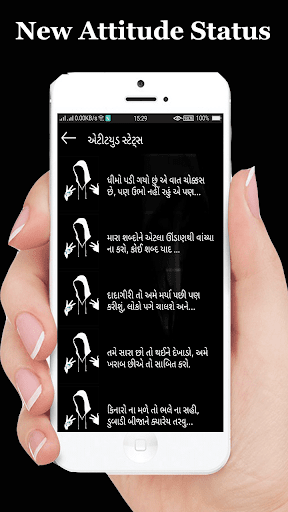 New Attitude Status
0.00KB/s
15:29
100%
એટીટયુડ સ્ટેટ્સ
ધીમો પડી ગયો છું એ વાત ચોક્કસ
છે, પણ ઉભો નહી રહું એ પણ...
મારા શબ્દોને એટલા ઊંડાણથી વાંચ્યા
ના કરો, કોઈ શબ્દ યાદ ...
દાદાગીરી તો અમે મર્યા પછી પણ
કરીશું, લોકો પગે ચાલશે અને...
તમે સારા છો તો થઈને દેખાડો, અમે
ખરાબ છીએ તો સાબિત કરો.
કિનારો ના મળે તો ભલે ના સહી,
ડુબાડી બીજાને ક્યારેય તરવુ...